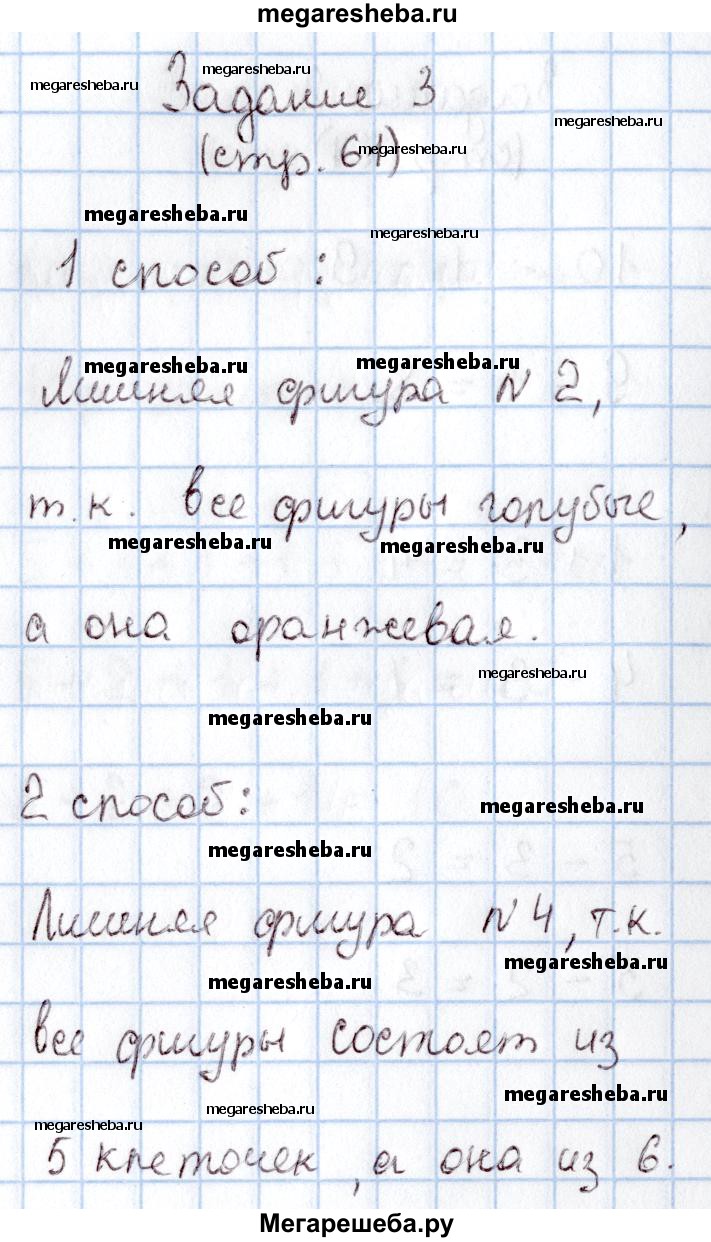 megaresheba.ru
megaresheba.ru
megaresheba.ru
Задание 3
megaresheba.ru
megaresheba.ru
(стр. 61)
megaresheba.ru
megaresheba.ru
1 способ:
megaresheba.ru
megaresheba.ru
Лишняя фигура N 2,
т.к. все фигуры голубые,
megaresheba.ru
megaresheba.ru
а она оранжевая.
megaresheba.ru
megaresheba.ru
2 способ:
megaresheba.ru
megaresheba.ru
Лишняя фигура N 4, т.к.
megaresheba.ru
megaresheba.ru
все фигуры состоят из
megaresheba.ru
megaresheba.ru
megaresheba.ru
5 клеточек, а она из 6.
Мегарешеба.ру